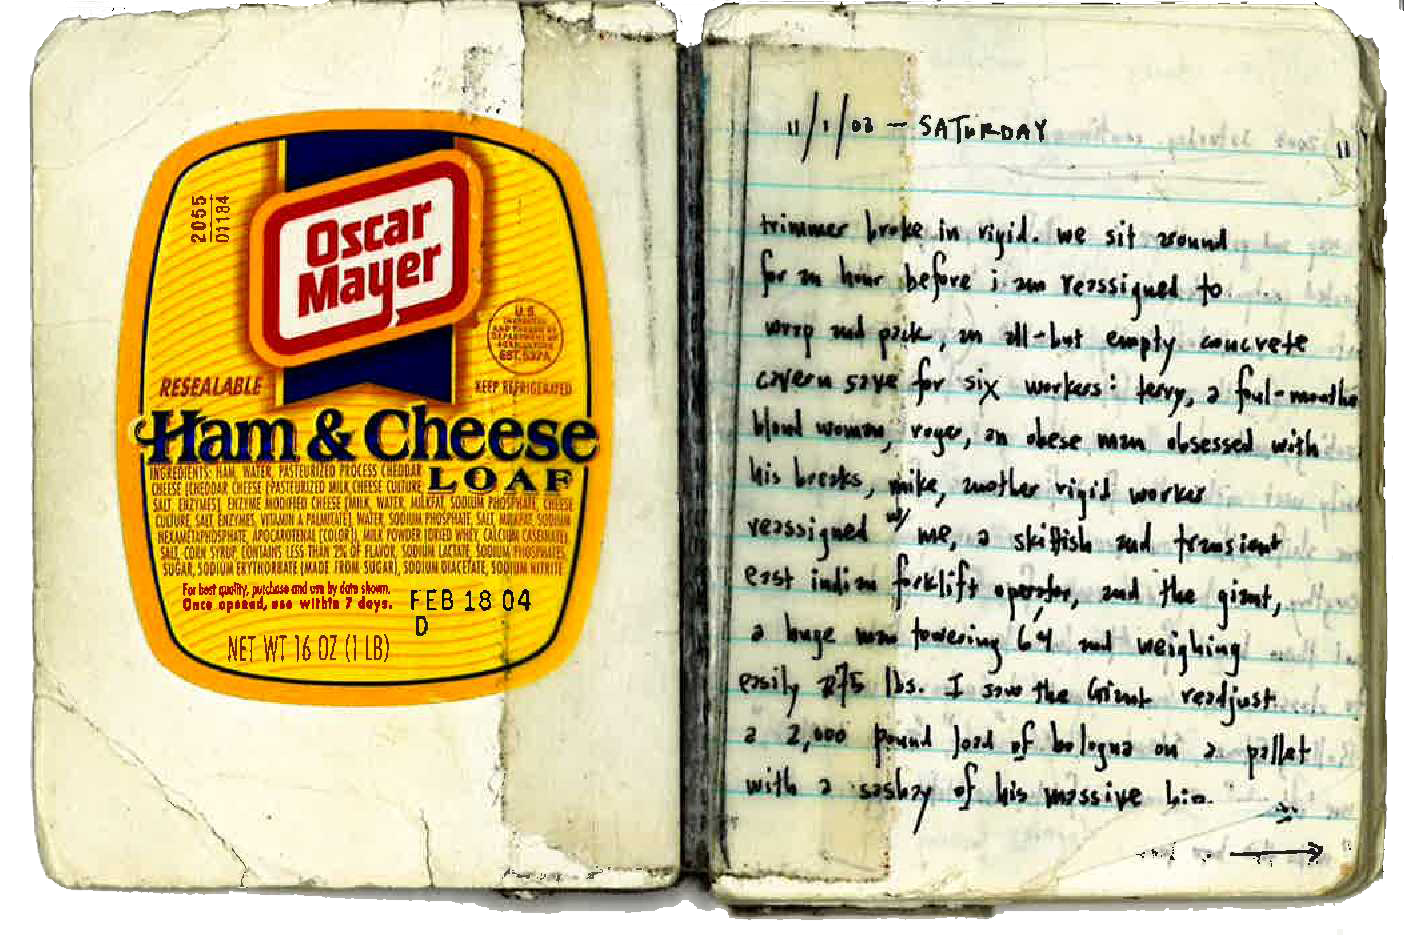 2055
01184
Oscar
Mayer
U.S.
RESEALABLE
KEEP REFRIGERATED
Ham & Cheese
LOAF
INGREDIENTS: HAM, WATER, PASTEURIZED PROCESS CHEDDAR
CHEESE [CHEDDAR CHEESE (PASTEURIZED MILK, CHEESE CULTURE,
SALT, ENZYMES), ENZYME MODIFIED CHEESE (MILK, WATER, MILKFAT, SODIUM PHOSPHATE, CHEESE
CULTURE, SALT, ENZYMES, VITAMIN A PALMITATE), WATER, SODIUM PHOSPHATE, SALT, MILKFAT, SODIUM
HEXAMETAPHOSPHATE, APOCAROTENAL (COLOR)], MILK POWDER, DRIED WHEY, CALCIUM CASEINATE,
SALT, CORN SYRUP, CONTAINS LESS THAN 2% OF FLAVOR, SODIUM LACTATE, SODIUM PHOSPHATES,
SUGAR, SODIUM ERYTHORBATE (MADE FROM SUGAR), SODIUM DIACETATE, SODIUM NITRITE
For best quality, purchase and use by date shown.
Once opened, use within 7 days.
FEB 18 04
D
NET WT 16 OZ (1 LB)
11/1/03 — SATURDAY
trimmer broke in rigid. we sit around
for an hour before i am reassigned to
wrap and pack, an all-but empty concrete
cavern save for six workers: terry, a foul-mouthe
blond woman, roger, an obese man obsessed with
his breaks, mike, another rigid worker
reassigned w/ me, a skittish and transient
east indian forklift operator, and the giant,
a huge man towering 6'4 and weighing
easily 275 lbs. I saw the Giant readjust
a 2,000 pound load of bologna on a pallet
with a sashay of his massive